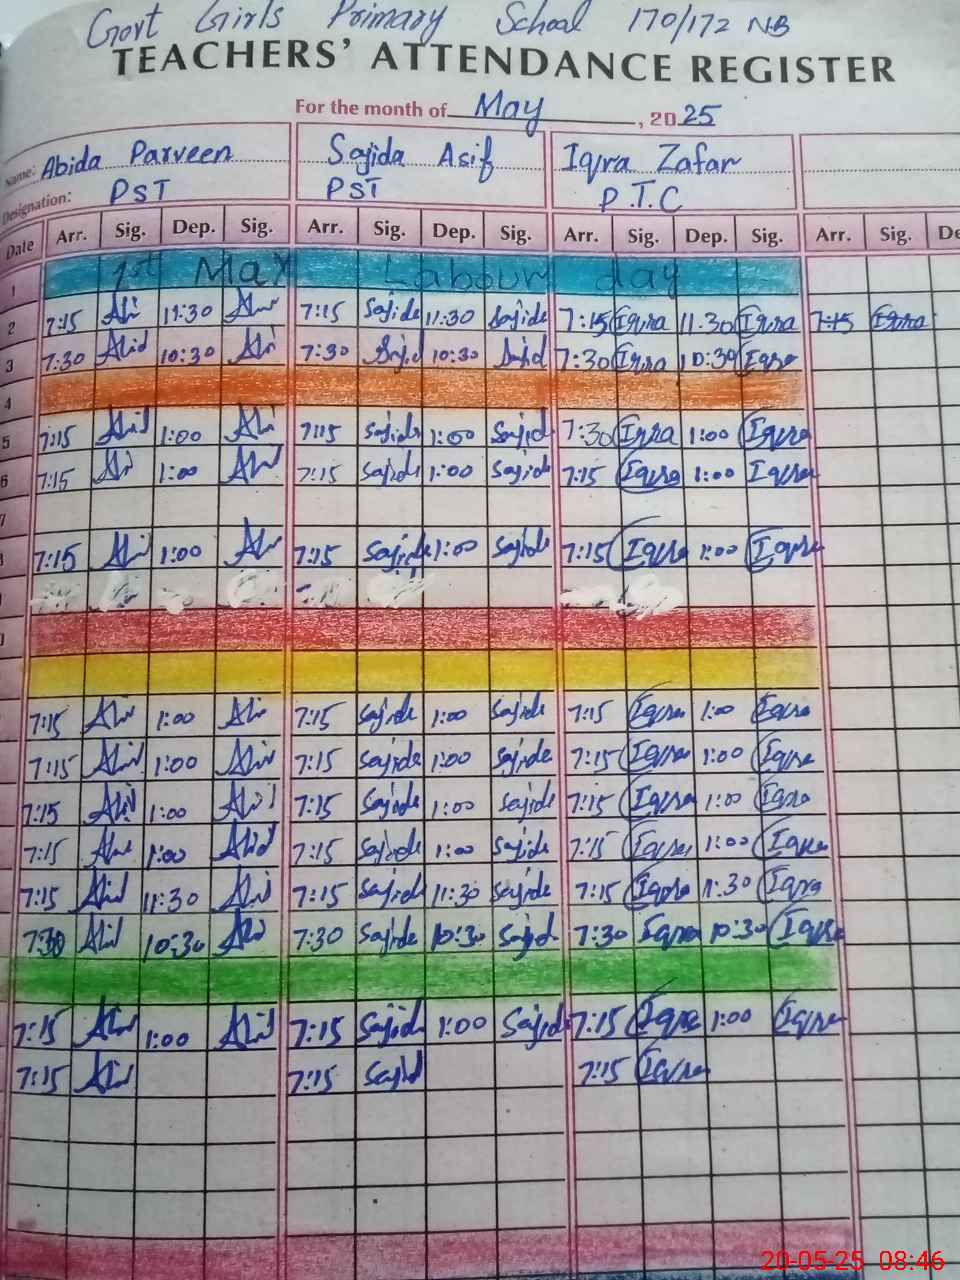 Govt Girls Primary School 170/172 NB
TEACHERS' ATTENDANCE REGISTER
For the month of May, 2025
Name: Abida Parveen Sajida Asif Iqra Zafar
Designation: PST PST P.T.C
Date Arr. Sig. Dep. Sig. Arr. Sig. Dep. Sig. Arr. Sig. Dep. Sig. Arr. Sig. De
1 1st May Labour day
2 7:15 11:30 7:15 Sajide 11:30 Sajide 7:15 Iqra 11:30 Iqra 7:15 Iqra
3 7:30 Abid 10:30 7:30 10:30 7:30 Iqra 10:30 Iqra
4
5 7:15 1:00 7:15 Sajide 1:00 Sajid 7:30 Iqra 1:00 Iqra
6 7:15 1:00 7:15 Sajide 1:00 Sajid 7:15 Iqra 1:00 Iqra
7
7:15 1:00 7:15 Sajide 1:00 Sajide 7:15 Iqra 1:00 Iqra
7:15 1:00 7:15 Sajide 1:00 Sajide 7:15 Iqra 1:00 Iqra
7:15 1:00 7:15 Sajide 1:00 Sajide 7:15 Iqra 1:00 Iqra
7:15 1:00 7:15 Sajide 1:00 Sajide 7:15 Iqra 1:00 Iqra
7:15 1:00 7:15 Sajide 1:00 Sajide 7:15 Iqra 1:00 Iqra
7:15 11:30 7:15 Sajide 11:30 Sajide 7:15 Iqra 11:30 Iqra
7:30 10:30 7:30 Sajide 10:30 Sajid 7:30 Iqra 10:30 Iqra
7:15 1:00 7:15 Sajide 1:00 Sajide 7:15 Iqra 1:00 Iqra
7:15 7:15 Sajid 7:15 Iqra
20-05-25 08:46